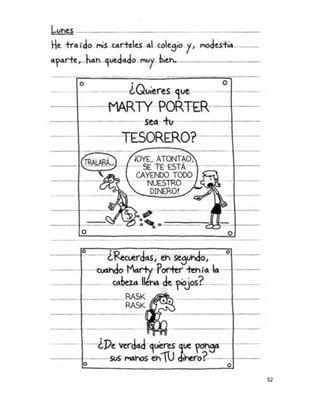 Lunes
He traído mis carteles al colegio y, modestia
aparte, han quedado muy bien.
¿Quieres que
MARTY PORTER
sea tu
TESORERO?
TRALARÁ...
¡OYE, ATONTAO,
SE TE ESTÁ
CAYENDO TODO
NUESTRO
DINERO!
¿Recuerdas, en segundo,
cuando Marty Porter tenía la
cabeza llena de piojos?
RASK
RASK
¿De verdad quieres que ponga
sus manos en TU dinero?
52